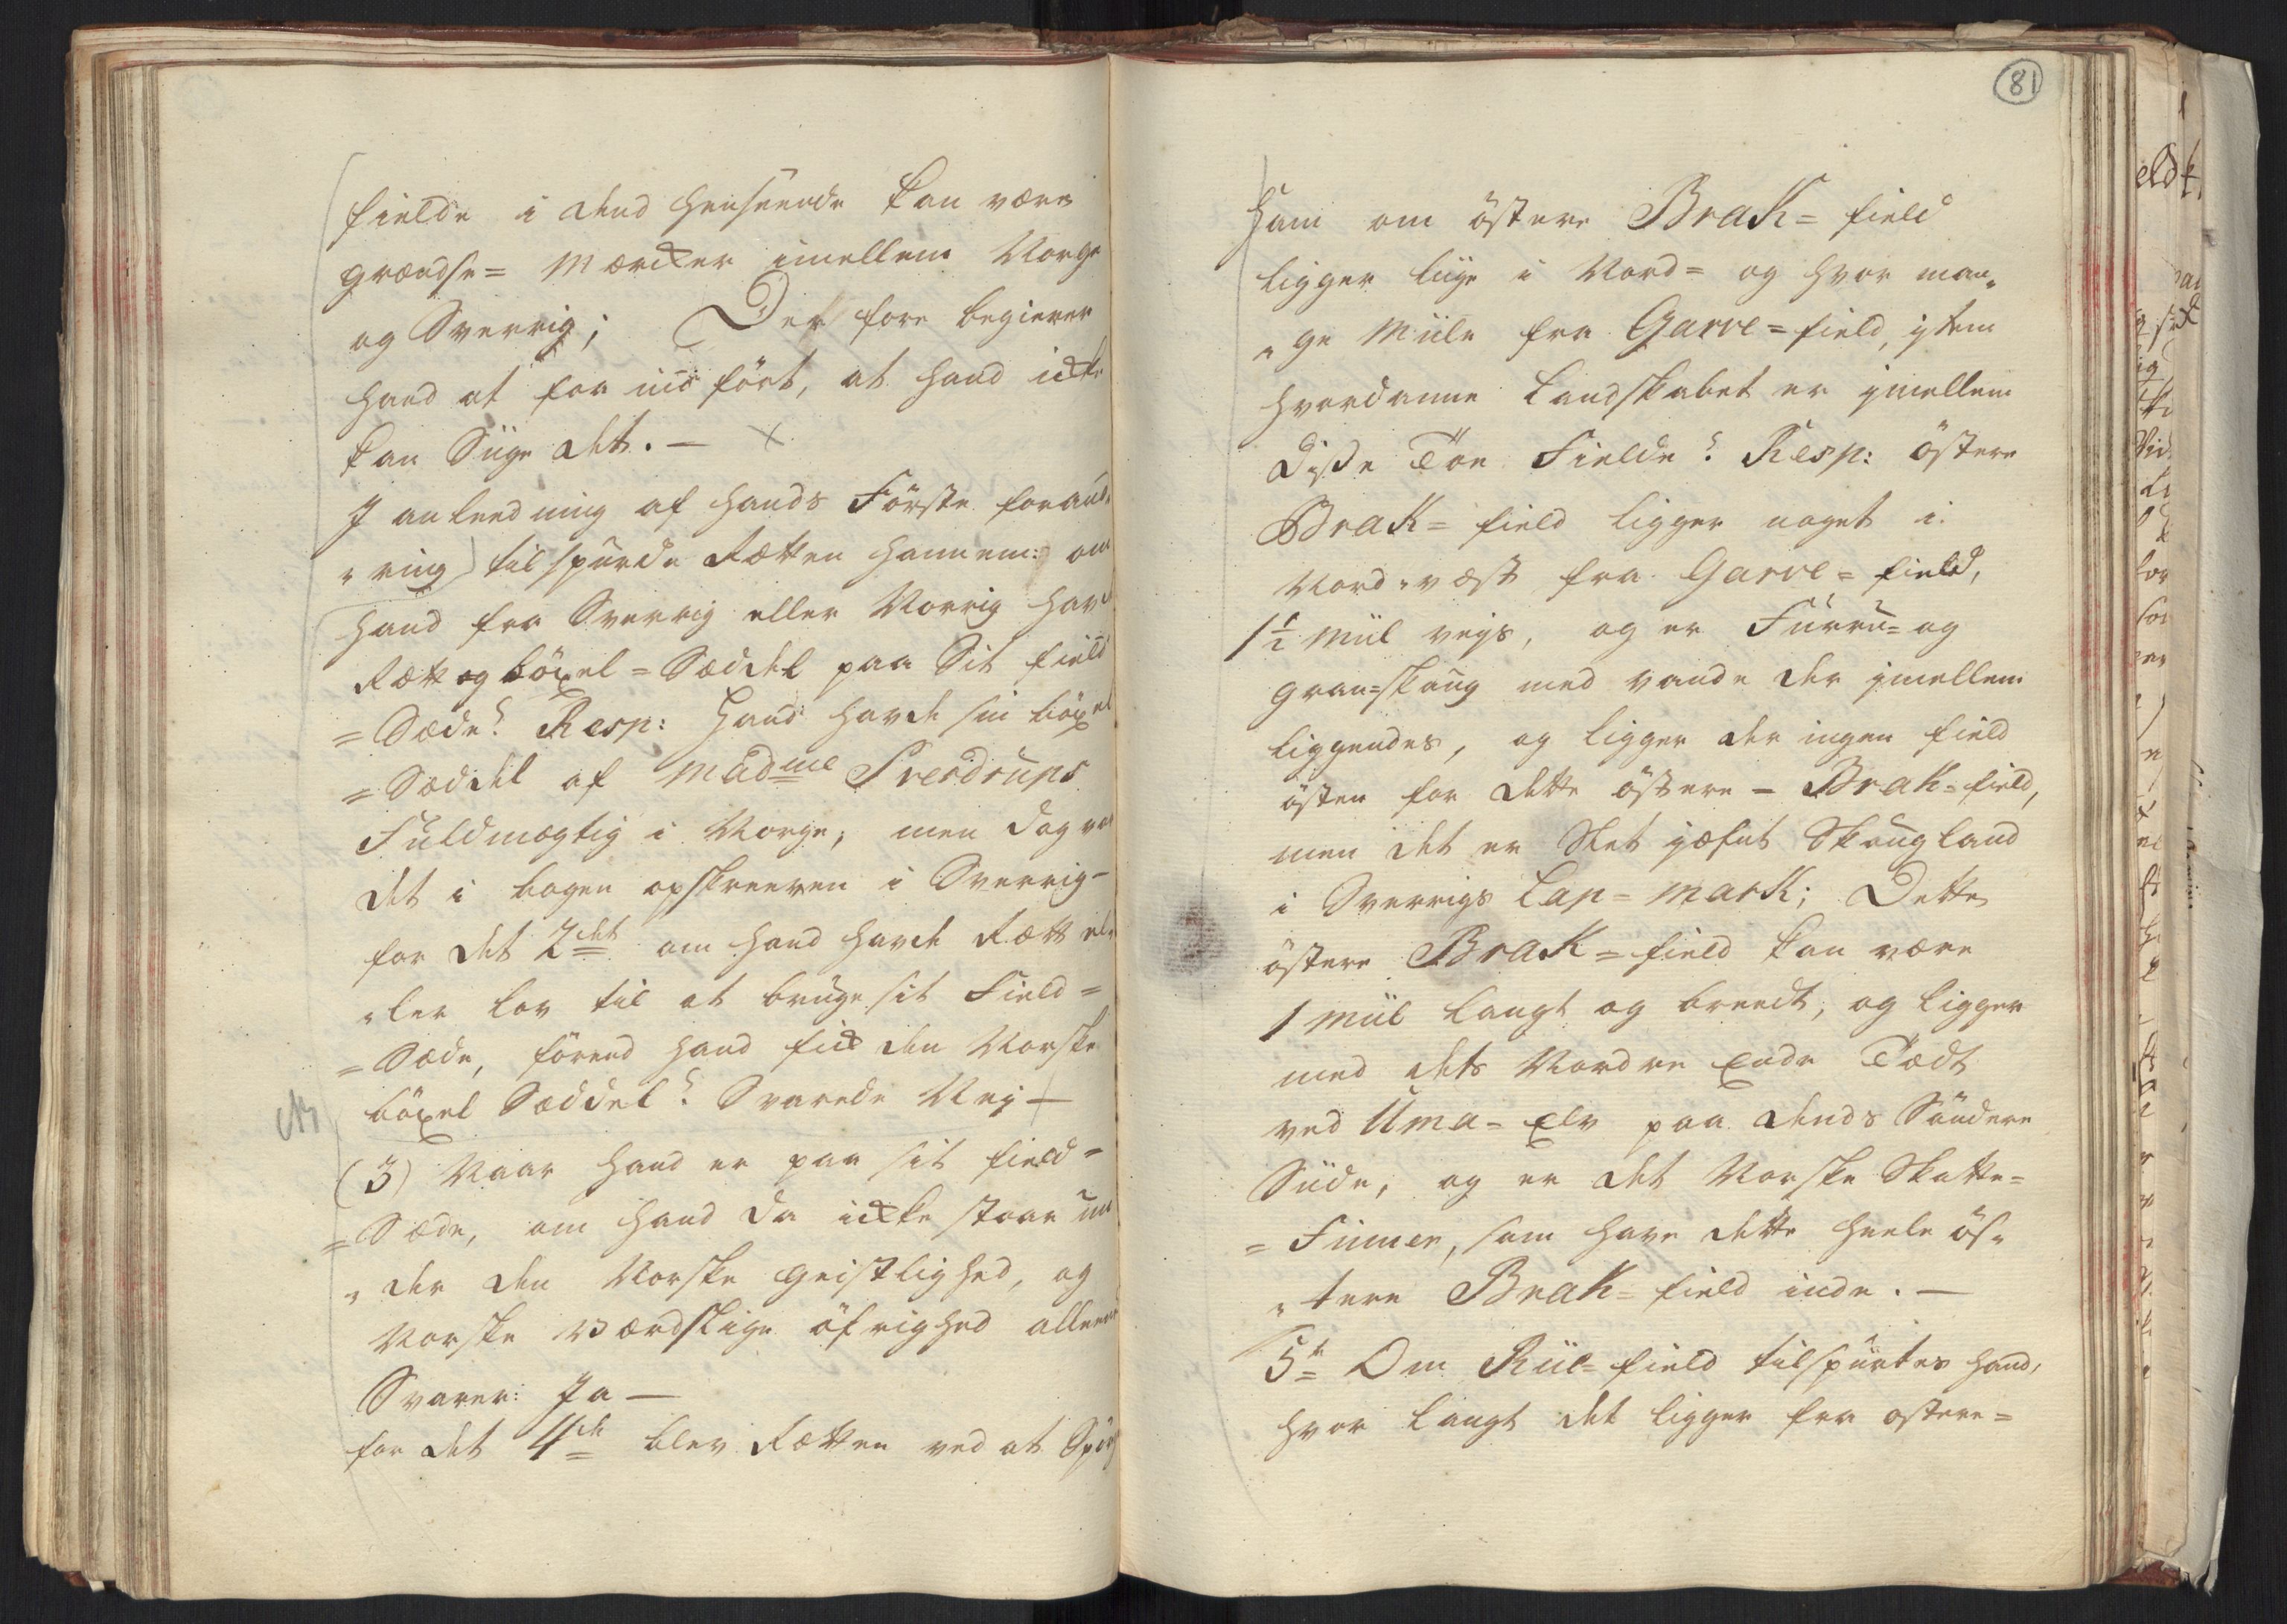 fielde i dend henseende kan være
grændse= Mærcker imellem Norge
og Sverrig; Der fore begierer
hand at faa indført, at hand icke
kan Siige det. —
J anleedning af hands Förste forand„
„ring) tilspurde Rætten hannem: om
hand fra Sverrig eller Norrig havde
Ræt og böxel=Sæddel paa Sit field
=Sæde? Resp: Hand havde sin böxel
=Sæddel af Madme Sverdrups
Fuldmægtig i Norge, men dog var
det i bogen opskreeven i Sverrig—
for det 2det om hand havde Ræt el„
„ler lov til at bruge sit Field=
=Sæde, førend hand fick den Norske
böxel Sæddel? Svarede Ney —
(3) Naar hand er paa sit field=
=Sæde, om hand da icke staar un
„der den Norske Geistlighed, og
Norske værdslige öfrighed alleene
Svarer: Ja —
for det 4de blev Rætten ved at Spörge
81
Ham om östere BraK= field
ligger liige i Nord= og hvor man„
„ge Miile fra Garve=field, jtem
hvordanne Landskabet er jmellem
diße Toe Fielde? Resp: östere
BraK= field ligger noget i
Nord-væst fra Garve= field,
1½ Miil veys, og er Furru= og
gran=skoug med vande der jmellem
liggendes, og ligger der ingen field
östen for dette östere – Brak=field,
men det er Slet jæfnt Skougland
i Sverrigs Lap=MarK; Dette
östere BraK=field kan være
1 Miil langt og breedt, og ligger
med dets Nordre Ende Tædt
ved Uma=Elv paa dends Söndere
Siide, og er det Norske Skatte=
=Finner, som have dette heele ös„
„tere BraK= field inde. —
5te Om Riil=field tilspurtes hand,
hvor langt det ligger fra östere=